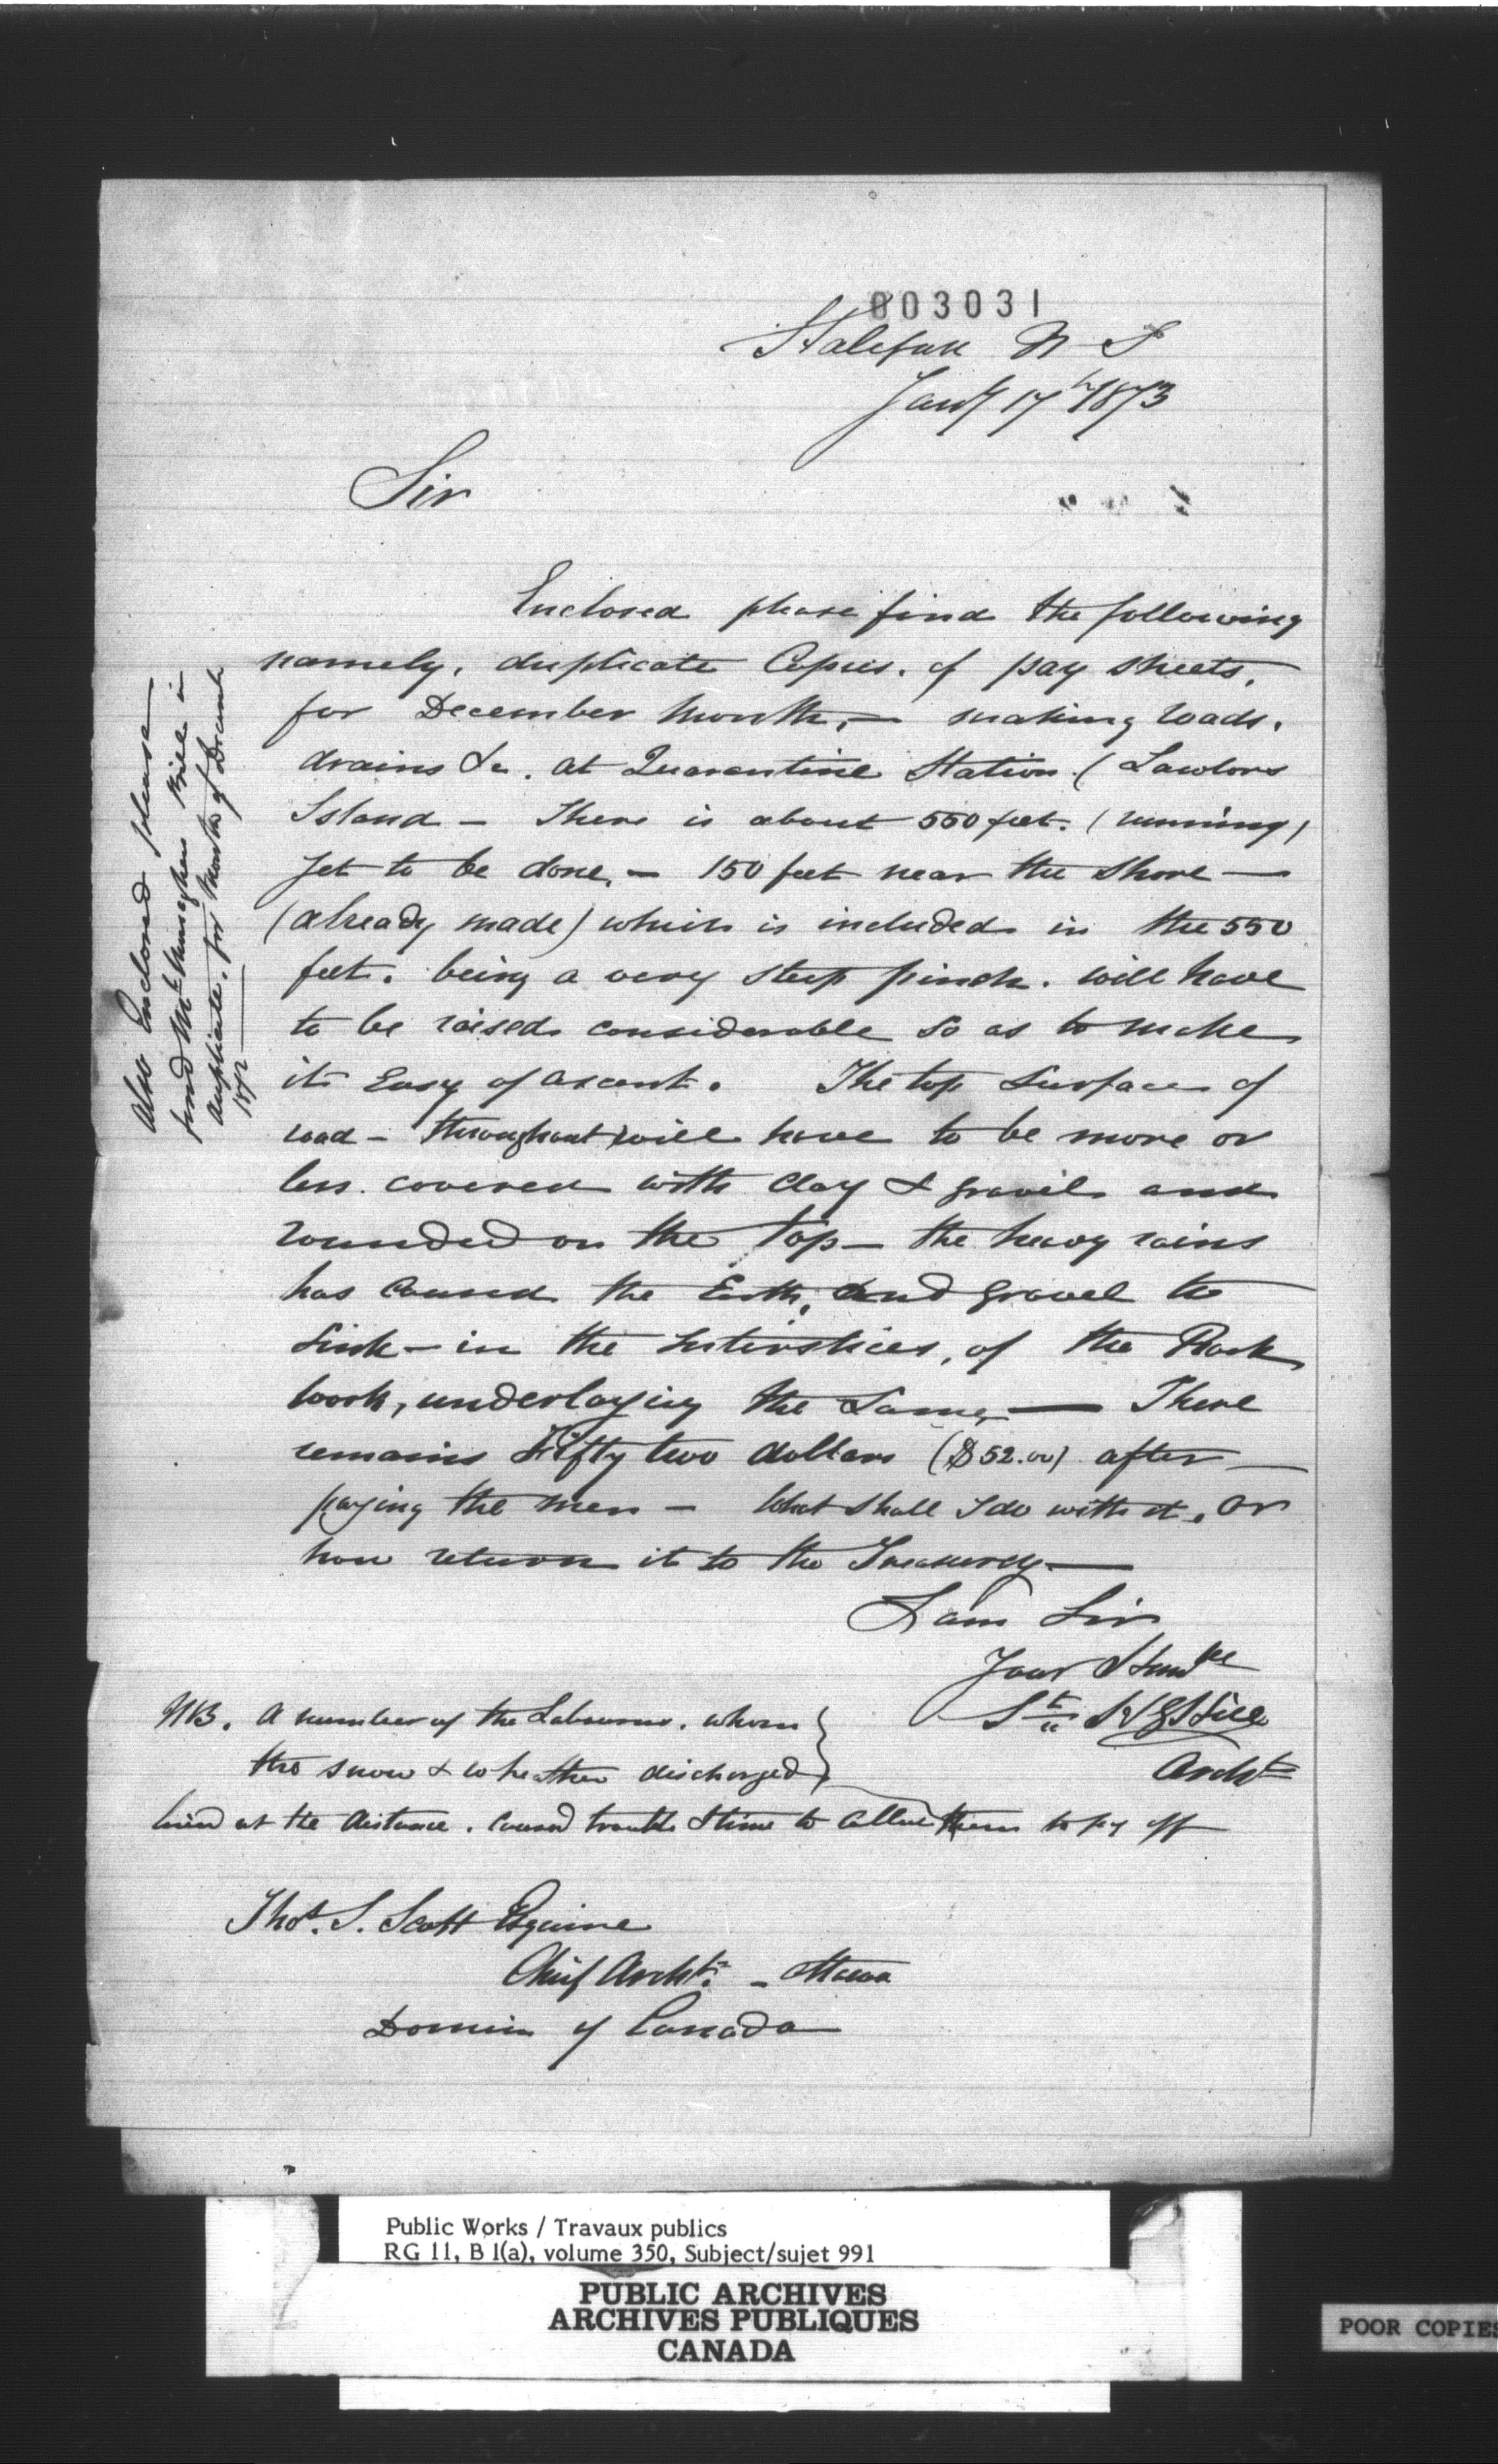 003031
Halifax N S
Jany 17th 1873
Sir
Enclosed please find the following
namely, duplicate Copies. of pay sheets,
for December Month, — making roads,
drains &c. at Quarantine Station (Lawlors
Island — There is about 550 feet. (running)
yet to be done, — 150 feet near the Shore —
(already made) which is included in the 550
feet. being a very steep pinch. will have
to be raised considerable so as to make
it Easy of ascent. The top Surface of
road — throughout will have to be more or
less. covered with Clay & gravel and
rounded on the top — the heavy rains
has caused the Earth, and gravel to
sink — in the Interstices, of the Rock
work, underlaying the Same, — There
remains Fifty two dollars ($52.00) after —
paying the men — What shall I do with it, or
how return it to the Treasury —
I am Sir
Your Humble
St H G Hill
Archt
Also Enclosed please —
find Mr Bill in
duplicate, for Month of Decemb
1872 —
NB. A number of the Labourers, whom
the snow & wheather discharged
lived at the distance. caused trouble & time to Collect them to pay off
Thos. S. Scott Esquire
Chief Archt. — Ottawa
Domin of Canada
Public Works / Travaux publics
RG 11, B 1(a), volume 350, Subject/sujet 991
PUBLIC ARCHIVES
ARCHIVES PUBLIQUES
CANADA
POOR COPIES